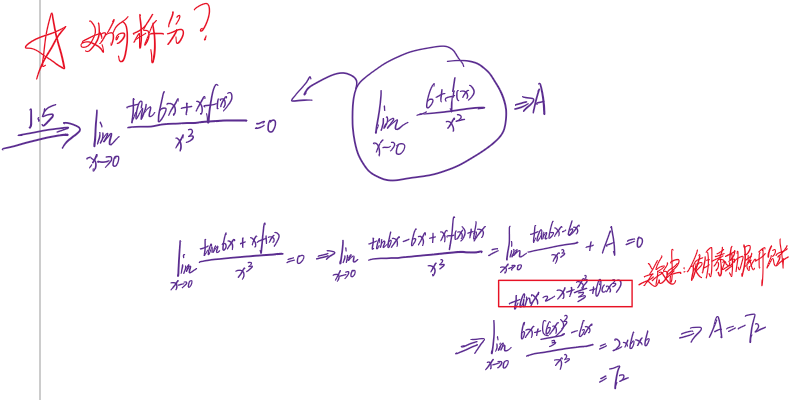 如何拆分?
1.5 ⇒ lim x→0 (tan6x + xf(x))/x³ = 0
lim x→0 (6+f(x))/x² ⇒ A
lim x→0 (tan6x + xf(x))/x³ = 0 ⇒ lim x→0 (tan6x - 6x + xf(x) + 6x)/x³ = lim x→0 (tan6x - 6x)/x³ + A = 0
关键:使用泰勒展开公式
tanx = x + x³/3 + o(x³)
⇒ lim x→0 (6x + (6x)³/3 - 6x)/x³ = 2×6×6 ⇒ A = -72
= 72